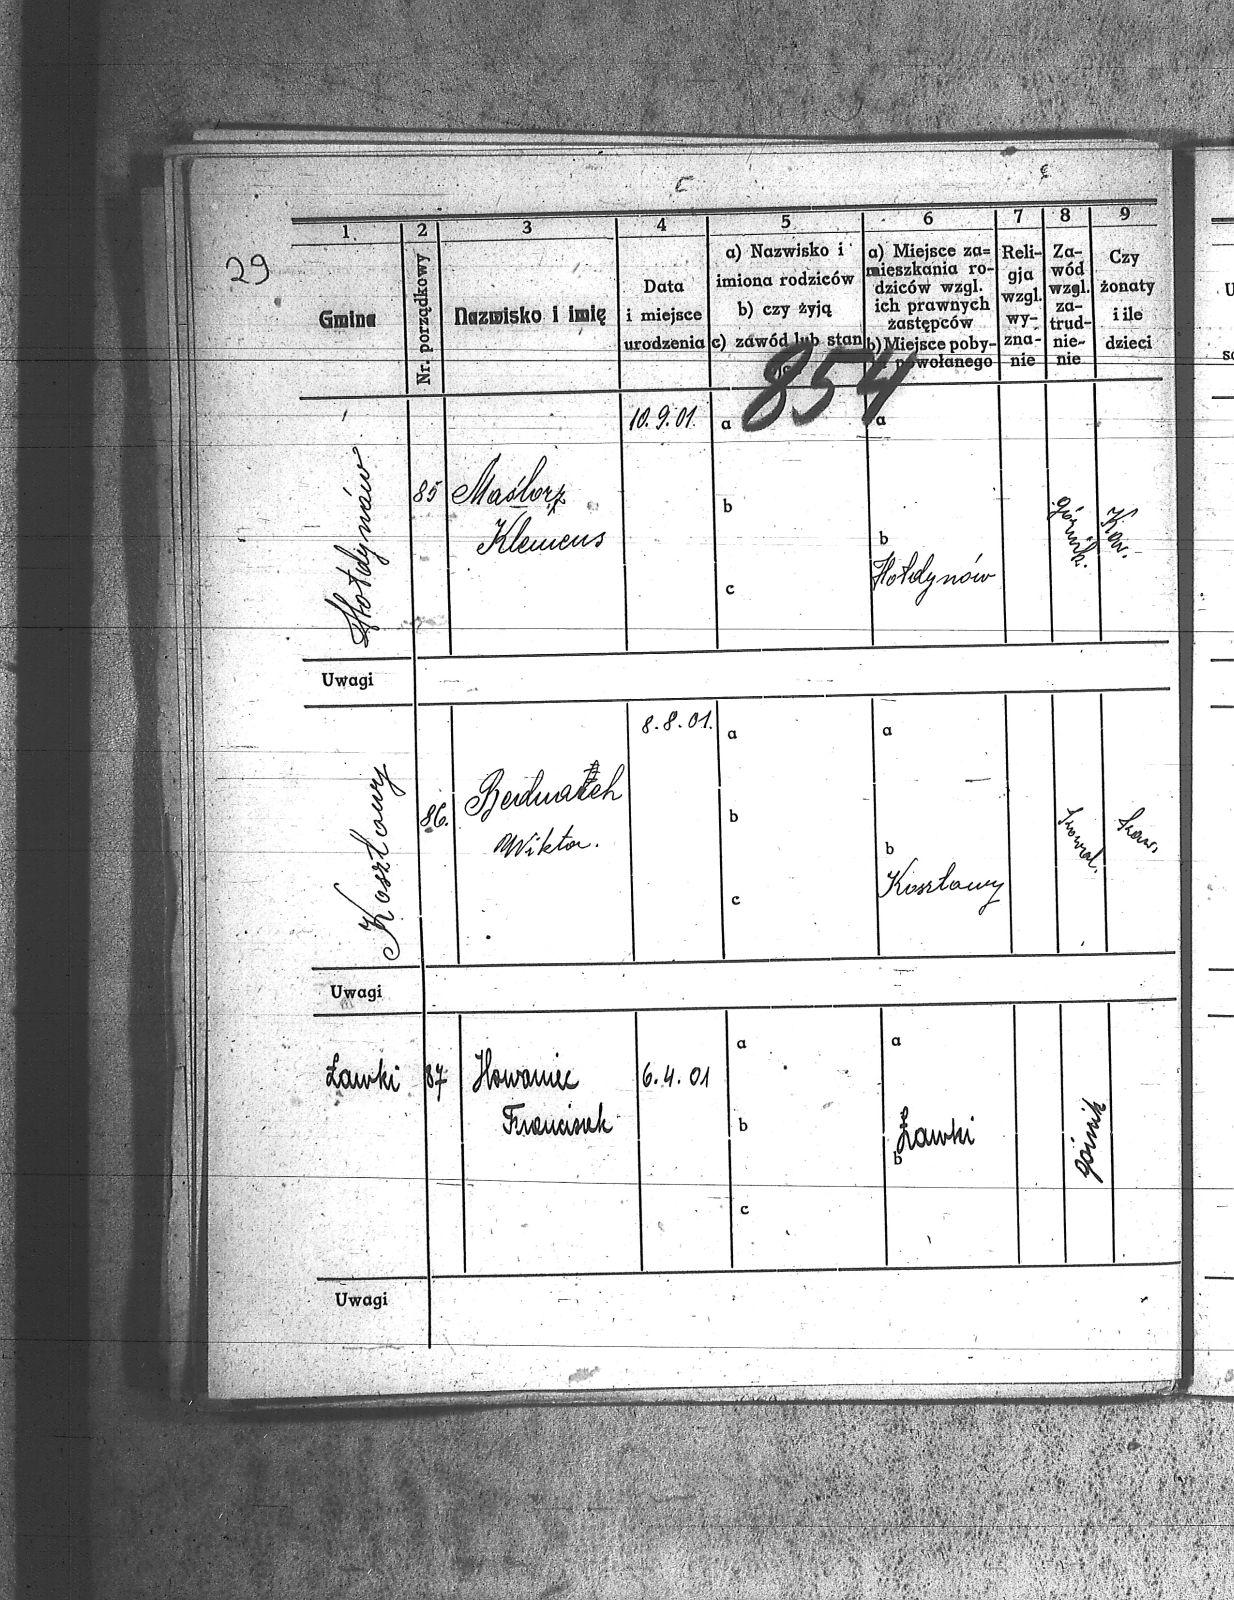 29
1.
2
3
4
5
6
7
8
9
Gmina
Nr. porządkowy
Nazwisko i imię
Data
i miejsce
urodzenia
a) Nazwisko i
imiona rodziców
b) czy żyją
c) zawód lub stan
a) Miejsce za=
mieszkania ro-
dziców wzgl.
ich prawnych
zastępców
b) Miejsce poby-
powołanego
Reli-
gja
wzgl.
wy-
zna-
nie
Za-
wód
wzgl.
za-
trud-
nie-
nie
Czy
żonaty
i ile
dzieci
854
Hołdynów
85
Maślorz
Klemens
10.9.01.
a
b
c
a
b
Hołdynów
górnik.
Kaw.
Uwagi
Kosztowy
86.
Wiktor.
8.8.01.
a
b
c
a
b
Kosztowy
Uwagi
Ławki
87
Howaniec
Franciszek
6.4.01
a
b
c
a
Ławki
b
górnik
Uwagi